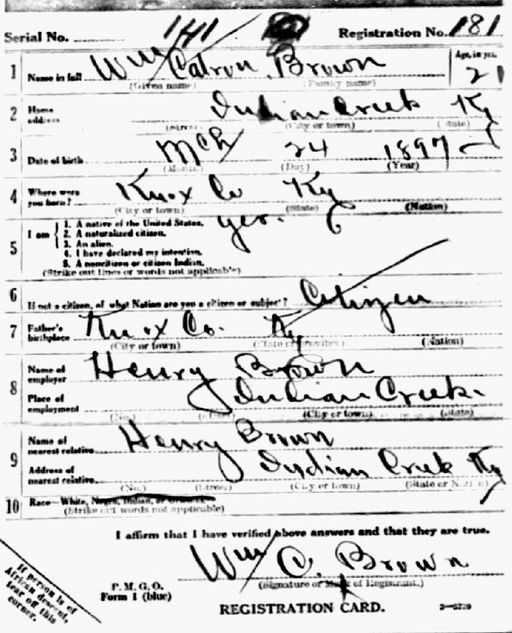 Serial No. 141 Registration No. 181
1 Name in full Wm Catron Brown Age, in yrs. 21
(Given name) (Family name)
2 Home address Indian Creek Ky
(Street) (City or town) (State)
3 Date of birth Mch 24 1897
(Month) (Day) (Year)
4 Where were you born? Knox Co Ky
(City or town) (State) (Nation)
5 I am yes.
1. A native of the United States.
2. A naturalized citizen.
3. An alien.
4. I have declared my intention.
5. A noncitizen or citizen Indian.
(Strike out lines or words not applicable)
6 If not a citizen, of what Nation are you a citizen or subject? Citizen
7 Father's birthplace Knox Co. Ky
(City or town) (State or province) (Nation)
8 Name of employer Henry Brown
Place of employment Indian Creek.
(No.) (Street) (City or town) (State)
9 Name of nearest relative Henry Brown
Address of nearest relative Indian Creek Ky
(No.) (Street) (City or town) (State or Nation)
10 Race—White, Negro, Indian, or Oriental
(Strike out words not applicable)
I affirm that I have verified above answers and that they are true.
Wm C. Brown
P.M.G.O. (Signature or Mark of Registrant.)
Form 1 (blue)
REGISTRATION CARD.
If person is of
African descent,
tear off this
corner.